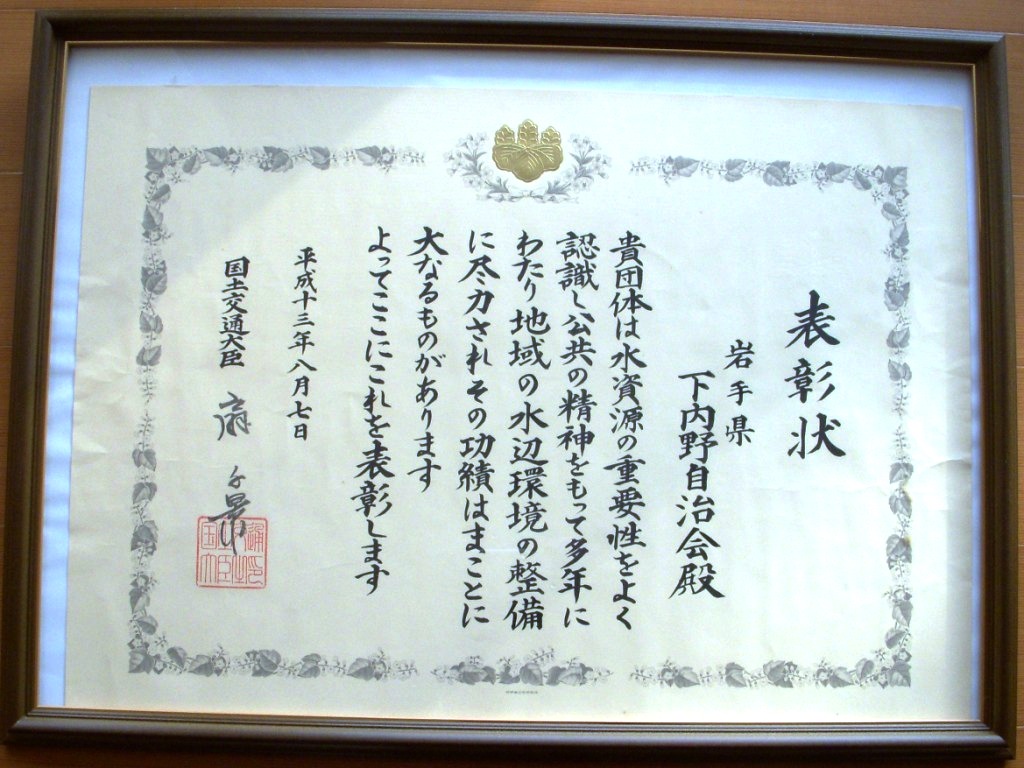 表彰状
岩手県
下内野自治会殿
貴団体は水資源の重要性をよく
認識し公共の精神をもって多年に
わたり地域の水辺環境の整備
に尽力されその功績はまことに
大なるものがあります
よってここにこれを表彰します
平成十三年八月七日
国土交通大臣